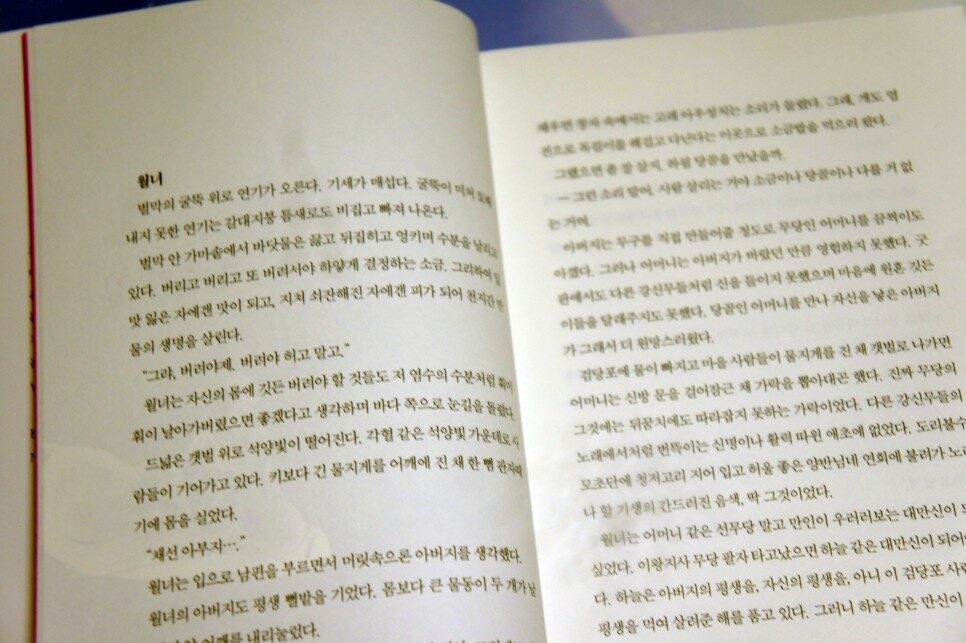 월녀
벌막의 굴뚝 위로 연기가 오른다. 기세가 매섭다. 굴뚝이 미처 토해
내지 못한 연기는 갈대지붕 틈새로도 비집고 빠져 나온다.
벌막 안 가마솥에서 바닷물은 끓고 뒤집히고 엉키며 수분을 날리고
있다. 버리고 버리고 또 버려서야 하얗게 결정하는 소금. 그리하여 입
맛 잃은 자에겐 맛이 되고, 지쳐 쇠잔해진 자에겐 피가 되어 천지간 만
물의 생명을 살린다.
“그랴, 버려야제. 버려야 허고 말고.”
월녀는 자신의 몸에 깃든 버려야 할 것들도 저 염수의 수분처럼 휘이
휘이 날아가버렸으면 좋겠다고 생각하며 바다 쪽으로 눈길을 돌렸다.
드넓은 갯벌 위로 석양빛이 떨어진다. 각혈 같은 석양빛 가운데로 사
람들이 기어가고 있다. 키보다 긴 물지게를 어깨에 진 채 한 뼘 판자때
기에 몸을 실었다.
“재선 아부지….”
월녀는 입으로 남편을 부르면서 머릿속으론 아버지를 생각했다.
월녀의 아버지도 평생 뻘밭을 기었다. 몸보다 큰 물동이 두 개가 날
어깨를 내리눌렀다.
채우면 창자 속에서는 고래 아우성치는 소리가 들렸다. 그래, 개도 엽
전으로 목걸이를 해걸고 다닌다는 이곳으로 소금밥을 먹으러 왔다.
그랬으면 좀 잘 살지, 하필 당골을 만났을까.
— 그런 소리 말어. 사람 살리는 거야 소금이나 당골이나 다를 거 없
는 거여.
아버지는 무구를 직접 만들어줄 정도로 무당인 어머니를 끔찍이도
아꼈다. 그러나 어머니는 아버지가 바랐던 만큼 영험하지 못했다. 굿
판에서도 다른 강신무들처럼 신을 들이지 못했으며 마음에 원혼 깃든
이들을 달래주지도 못했다. 당골인 어머니를 만나 자신을 낳은 아버지
가 그래서 더 원망스러웠다.
검당포에 물이 빠지고 마을 사람들이 물지게를 진 채 갯벌로 나가면
어머니는 신방 문을 걸어잠근 채 가락을 뽑아대곤 했다. 진짜 무당의
그것에는 뒤꿈치에도 따라잡지 못하는 가락이었다. 다른 강신무들의
노래에서처럼 번뜩이는 신명이나 활력 따윈 애초에 없었다. 도리불수
모초단에 청저고리 지어 입고 허울 좋은 양반님네 연회에 불려가 노래
나 할 기생의 간드러진 음색, 딱 그것이었다.
월녀는 어머니 같은 선무당 말고 만인이 우러러보는 대만신이 되고
싶었다. 이왕지사 무당 팔자 타고났으면 하늘 같은 대만신이 되어야
다. 하늘은 아버지의 평생을, 자신의 평생을, 아니 이 검당포 사람
평생을 먹여 살려준 해를 품고 있다. 그러니 하늘 같은 만신이